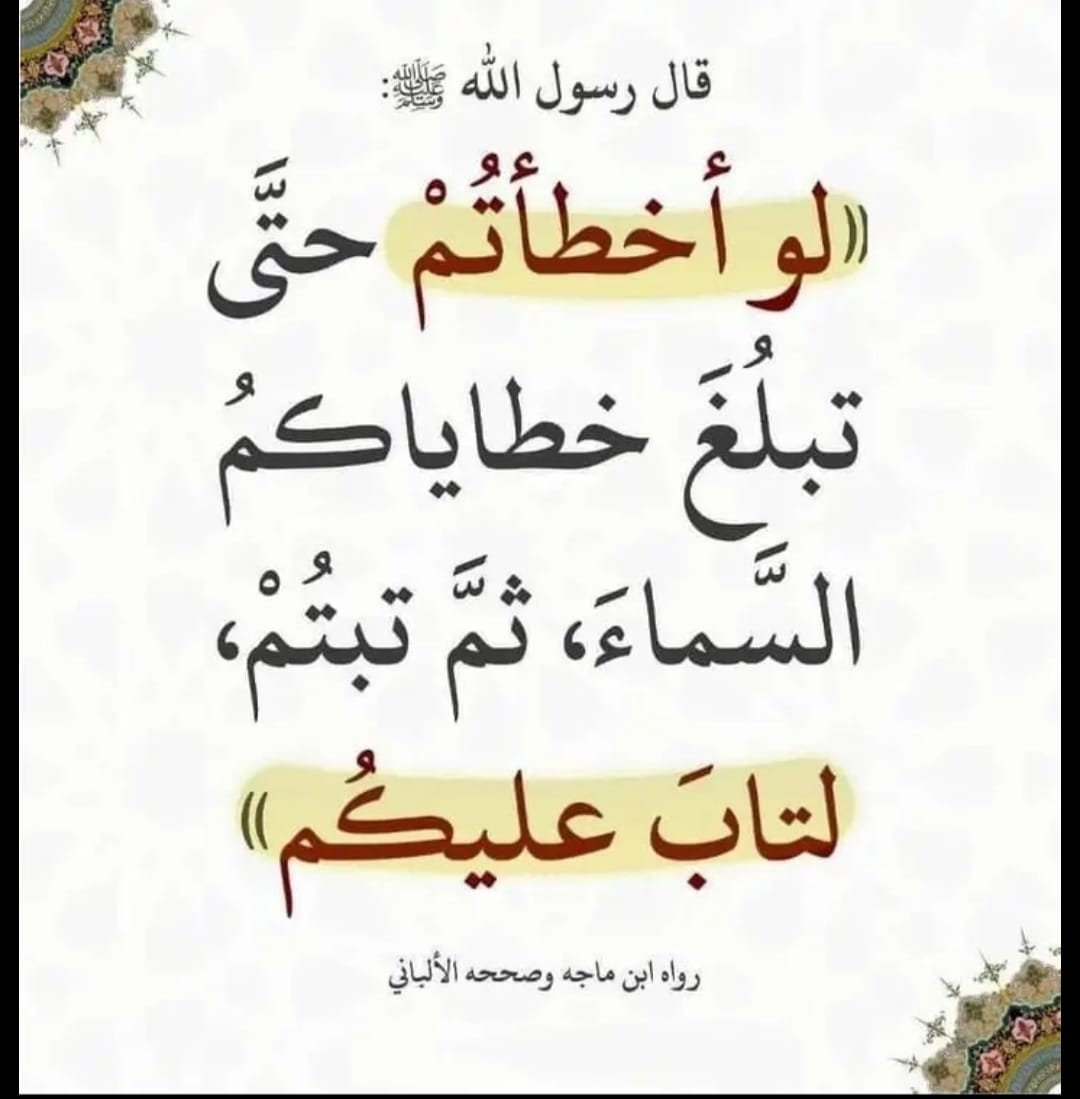 قال رسول الله ﷺ:
((لو أخطأتُمْ حتَّى
تبلُغَ خطاياكمُ
السَّماءَ، ثمَّ تبتُمْ،
لتابَ عليكُم))
رواه ابن ماجه وصححه الألباني